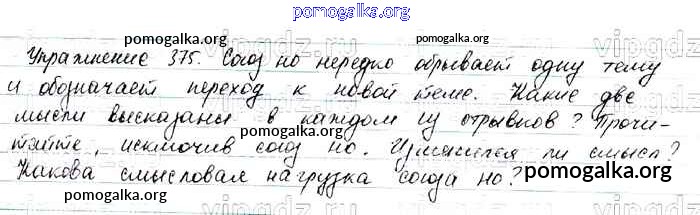 pomogalka.org
pomogalka.org pomogalka.org
Упражнение 375. Союз но нередко обрывает одну тему
и обозначает переход к новой теме. Какие две
мысли высказаны в каждом из отрывков? Прочи-
pomogalka.org
тайте, исключив союз но. Изменился ли смысл?
Какова смысловая нагрузка союза но?
pomogalka.org
pomogalka.org